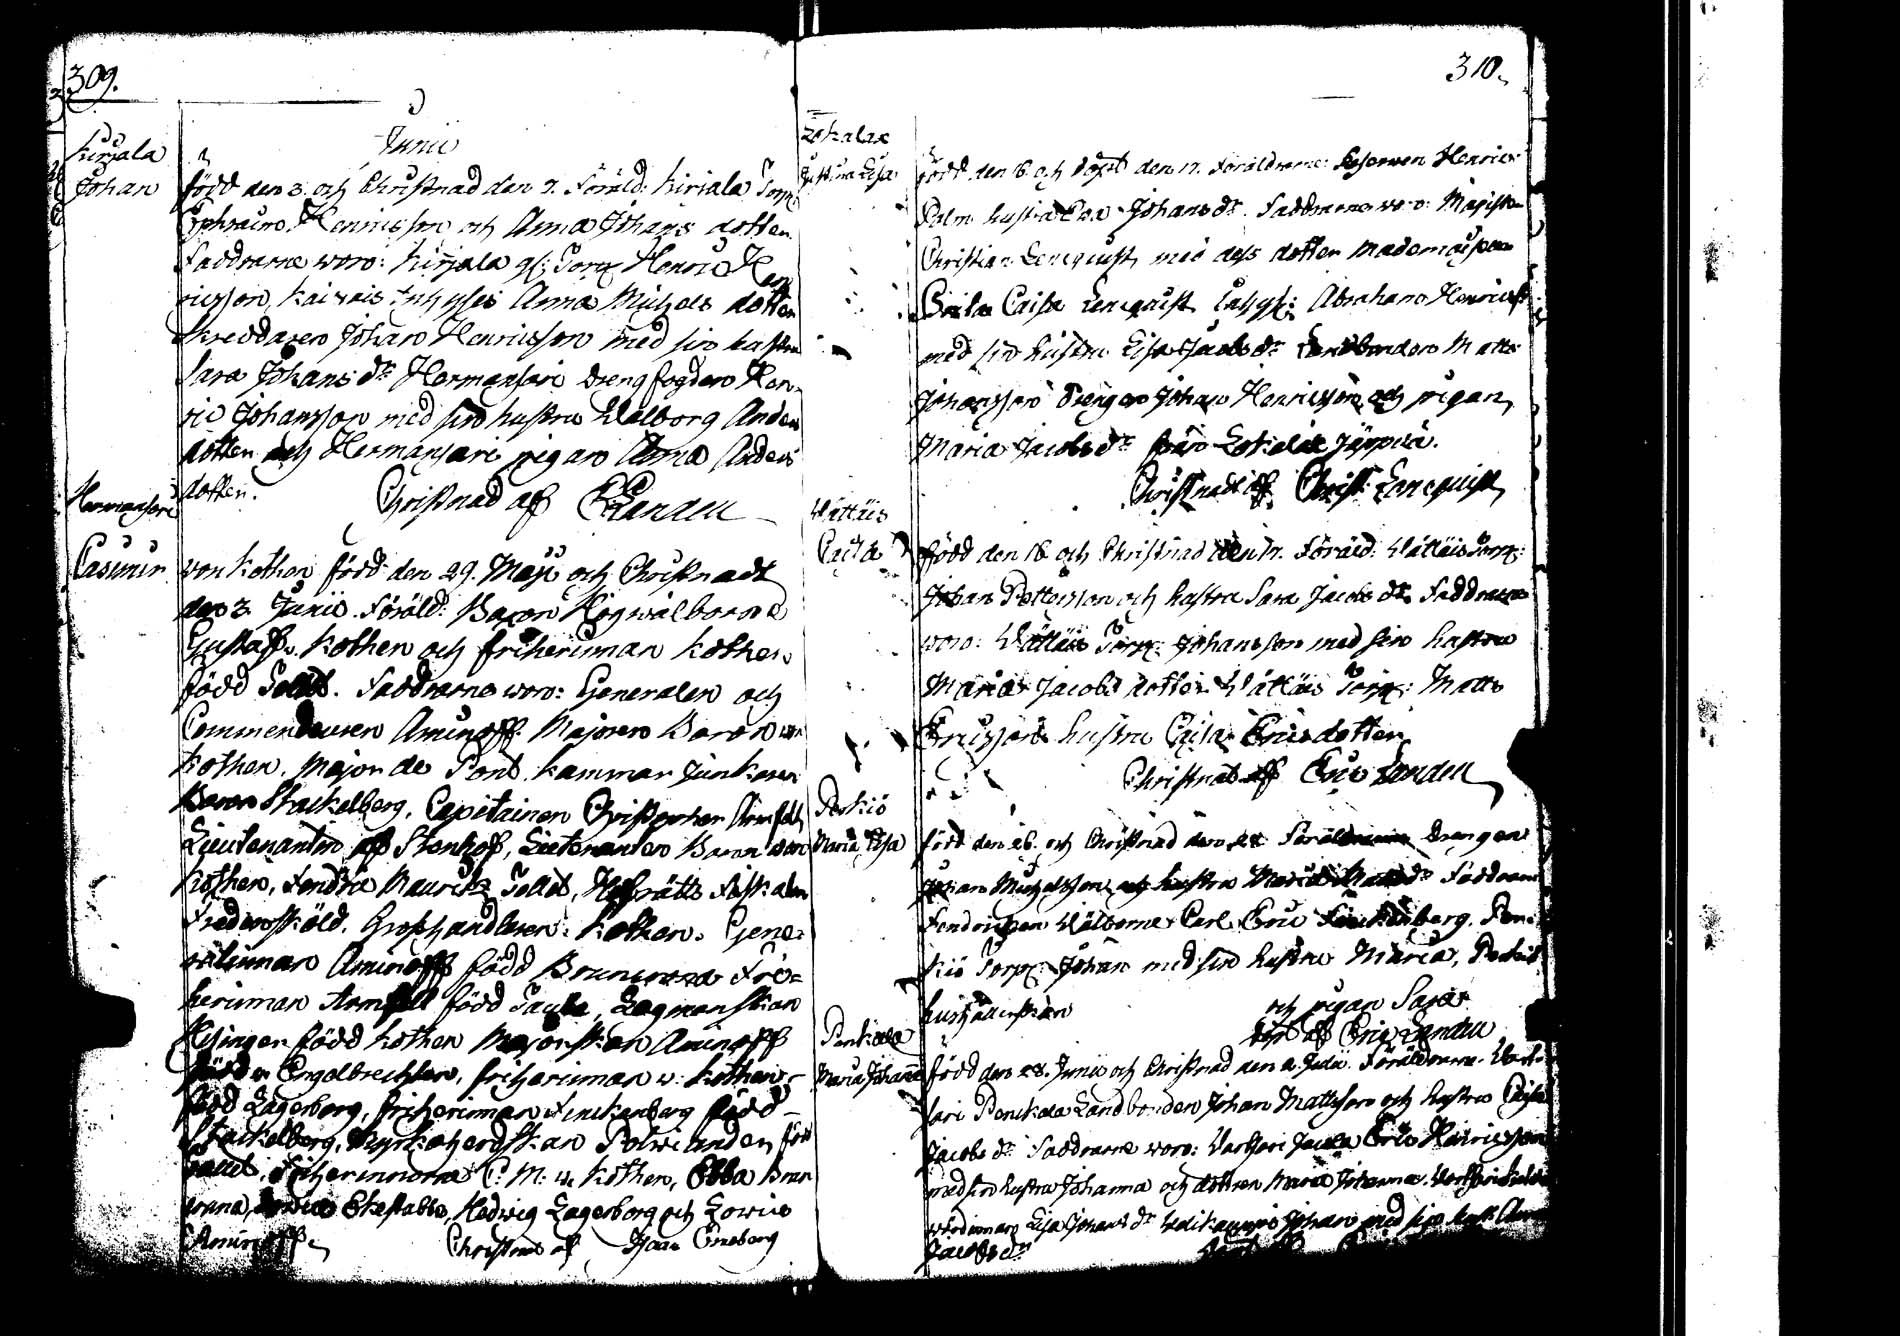 309.
Junii
Kirjala
Johan
född den 3. och Christnad den 7. Föräld: Kirjala Torp:
Ephraim Henricsson och Anna Johans dotter
Faddrarne woro: Kirjala gl: Torp: Henric Hen
ricsson, Anna Michels dotter
Skreddaren Johan Henricsson med sin hustru
Sara Johans dr Hermansari Drengfogden Hen-
ric Johansson med sin hustru Walborg Anders
dotter och Hermansari pigan Anna Anders
dotter. Christnad af E Landell
Hermansari
Casimir
von Kothen född den 29. Maji och Christnadt
den 3. Junii. Föräld: Baron Högwälborne
Gustaff v. Kothen och friherinnan Kothen
född Tollet. Faddrarne woro: Generalen och
Commendeuren Aminoff. Majoren Baron von
Kothen. Major de Pont. Kammar Junkaren
Baron Stackelberg, Capitainen Christopher Armfelt,
Lieutenanten af Stenhof, Lieutenanten Baron von
Kothen, Fendric Mauritz Tollet, Hofrätts Fiskalen
Fredensköld. Grosshandlaren Kothen. Gene-
ralinnan Aminoff född Brunowna Fri-
herinnan Armfelt född Taube, Lagmanskan
Hisinger född Kothen Majorskan Aminoff
född Engelbrechten, friherinnan v: Kothen
född Lagerborg, friherinnan Finckenberg född
Stackelberg, Kyrkoherdskan Polwiander, född
Tollet, Friherinnorna C: M: v. Kothen, Ebba Brun
owna, Lowisa Ekestubbe, Hedwig Lagerborg och Lowise
Aminoff. Christnad af Isaac Erneberg
310.
Lokalax
Justina Lisa
född den 16. och döpt den 17. Föräldrarne: Henric
Palm hustru Eva Johans dr. Faddrarne woro: Magister
Christian Lencquist, med dess dotter Mademoiselle
Brita Caisa Lencquist Abraham Henricss:
med sin hustru Lisa Jacobs dr Landbonden Matts
Johansson Drengen Johan Henricsson och pigan
Maria Jacobs dr från Lokalax Jäppilä.
Christnadt af Christ: Lencquist
Wättäis
Caisa
född den 16. och Christnad den 17. Föräld: Wättäis Torp:
Johan Pettersson och hustru Sara Jacobs dr. Faddrarne
woro: Wättäis Torp: Johansson med sin hustru
Maria Jacobs dotter Wättäis Torp: Matts
Ericssons hustru Caisa Ericsdotter
Christnat af Eric Landell
Perkiö
Maria Lisa
född den 26. och Christnad den 28 Föräldrarne Drengen
Johan Michelsson och hustru Maria Matts dr Faddrarne
Fendricken Wälborne Carl Eric Finckenberg. Per-
kiö Torp: Johan med sin hustru Maria, Perkiö
hushållerskan och pigan Sara
af Eric Landell
Penkala
Maria Johanna
född den 28. Junii och Christnad den 2. Julii. Föräldrarne. Wart-
sari Penckala Landbonden Johan Mattsson och hustru Caisa
Jacobs dr Faddrarne woro: Wartsari Eric Henricsson
med sin hustru Johanna och dottren Maria Johanna.
Lisa Johans dr Johan med sin hustr: Anna
Jacobs dr